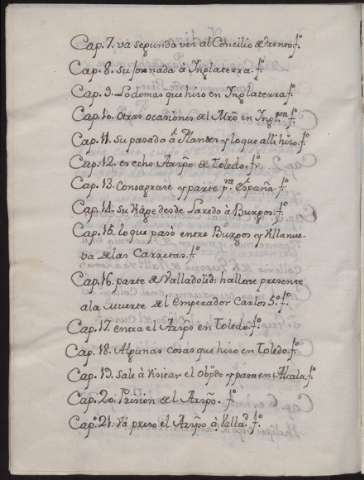 Cap. 7. va segunda vez al Concilio de trento. fº
Cap. 8. Su Jornada à Inglaterra. fº
Cap. 9. Lo demas que hizo en Inglaterra fº
Cap. 10. Otras ocasiones del Mrō en Ingrra fº
Cap. 11. Su pasada à Flandes y lo que alli hizo. fº
Cap. 12. es echo Arzpō de Toledo. fº
Cap. 13. Consagrase y parte pra España. fº
Cap. 14. Su viage desde Laredo à Burgos. fº
Cap. 15. lo que pasò entre Burgos y Villanue-
va de las Carretas. fº
Cap. 16. parte de Valladolid: hallase presente
a la muerte del Emperador Carlos 5º fº
Cap. 17. entra el Arzpō en Toledo. fº
Cap. 18. Algunas cosas que hizo en Toledo. fº
Cap. 19. Sale à Visitar el Obpdo y para en Alcala. fº
Cap. 20. Prision del Arzpō. fº
Cap. 21. Và preso el Arzpō à Vallad. fº